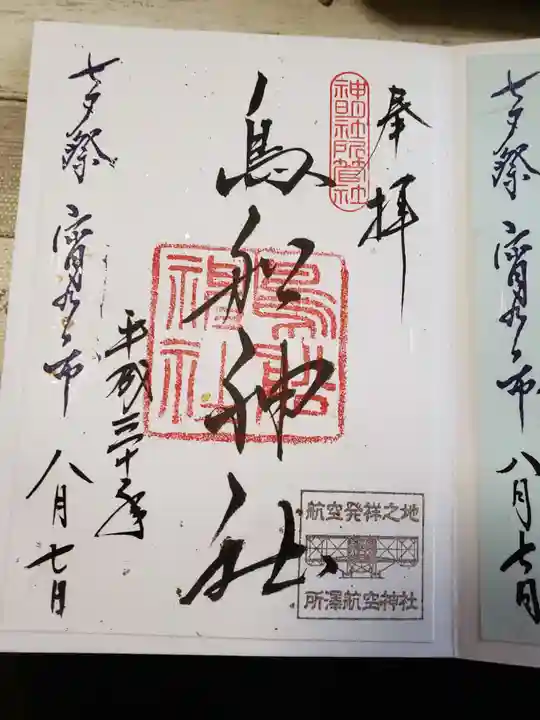 奉拝
神明社所管社
鳥船神社
鳥船
神社
航空発祥之地
所澤航空神社
平成三十年
八月七日
七夕祭
七夕祭
八月七日